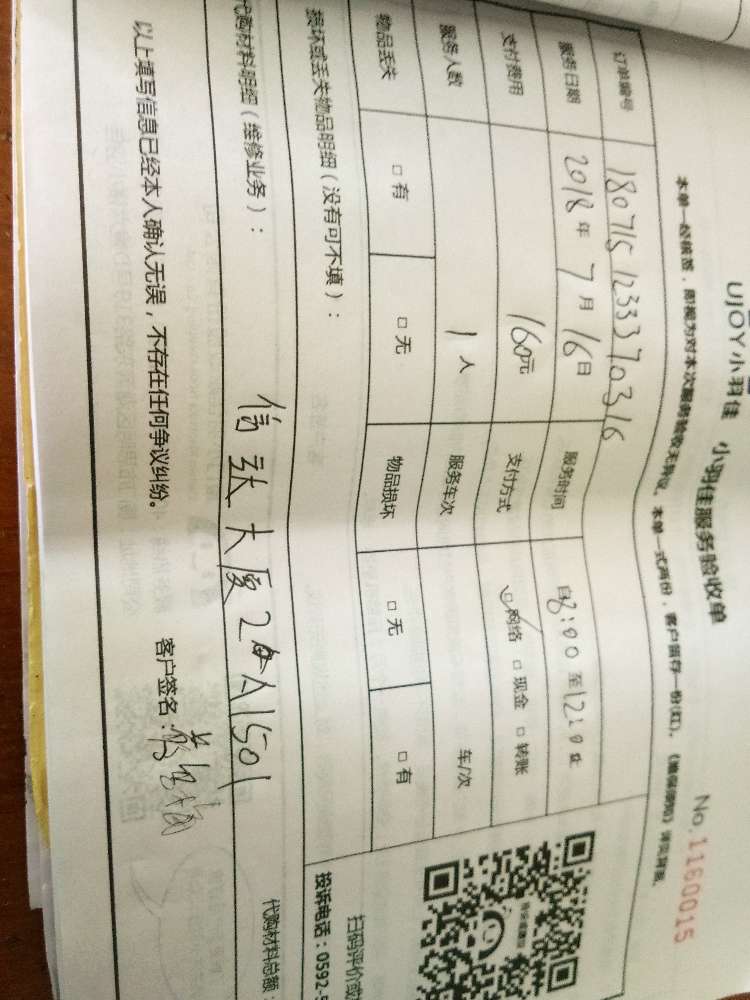 UJOY小羽佳 小羽佳服务验收单
No.1160015
本单一经核签，即视为对本次服务验收无异议。本单一式两份，客户留存一份(红)。
订单编号 1807151233370316
服务日期 2018年7月16日 服务时间 自8:00至12:00止
支付费用 160元 支付方式 网络 □现金 □转账
服务人数 1人 服务车次 车/次
物品丢失 □有 □无 物品损坏 □无 □有
损坏或丢失物品明细（没有可不填）：
代购材料明细（维修业务）： 代购材料总额：
大厦2 1501
以上填写信息已经本人确认无误，不存在任何争议纠纷。 客户签名：
扫码评价或
投诉电话：0592-5